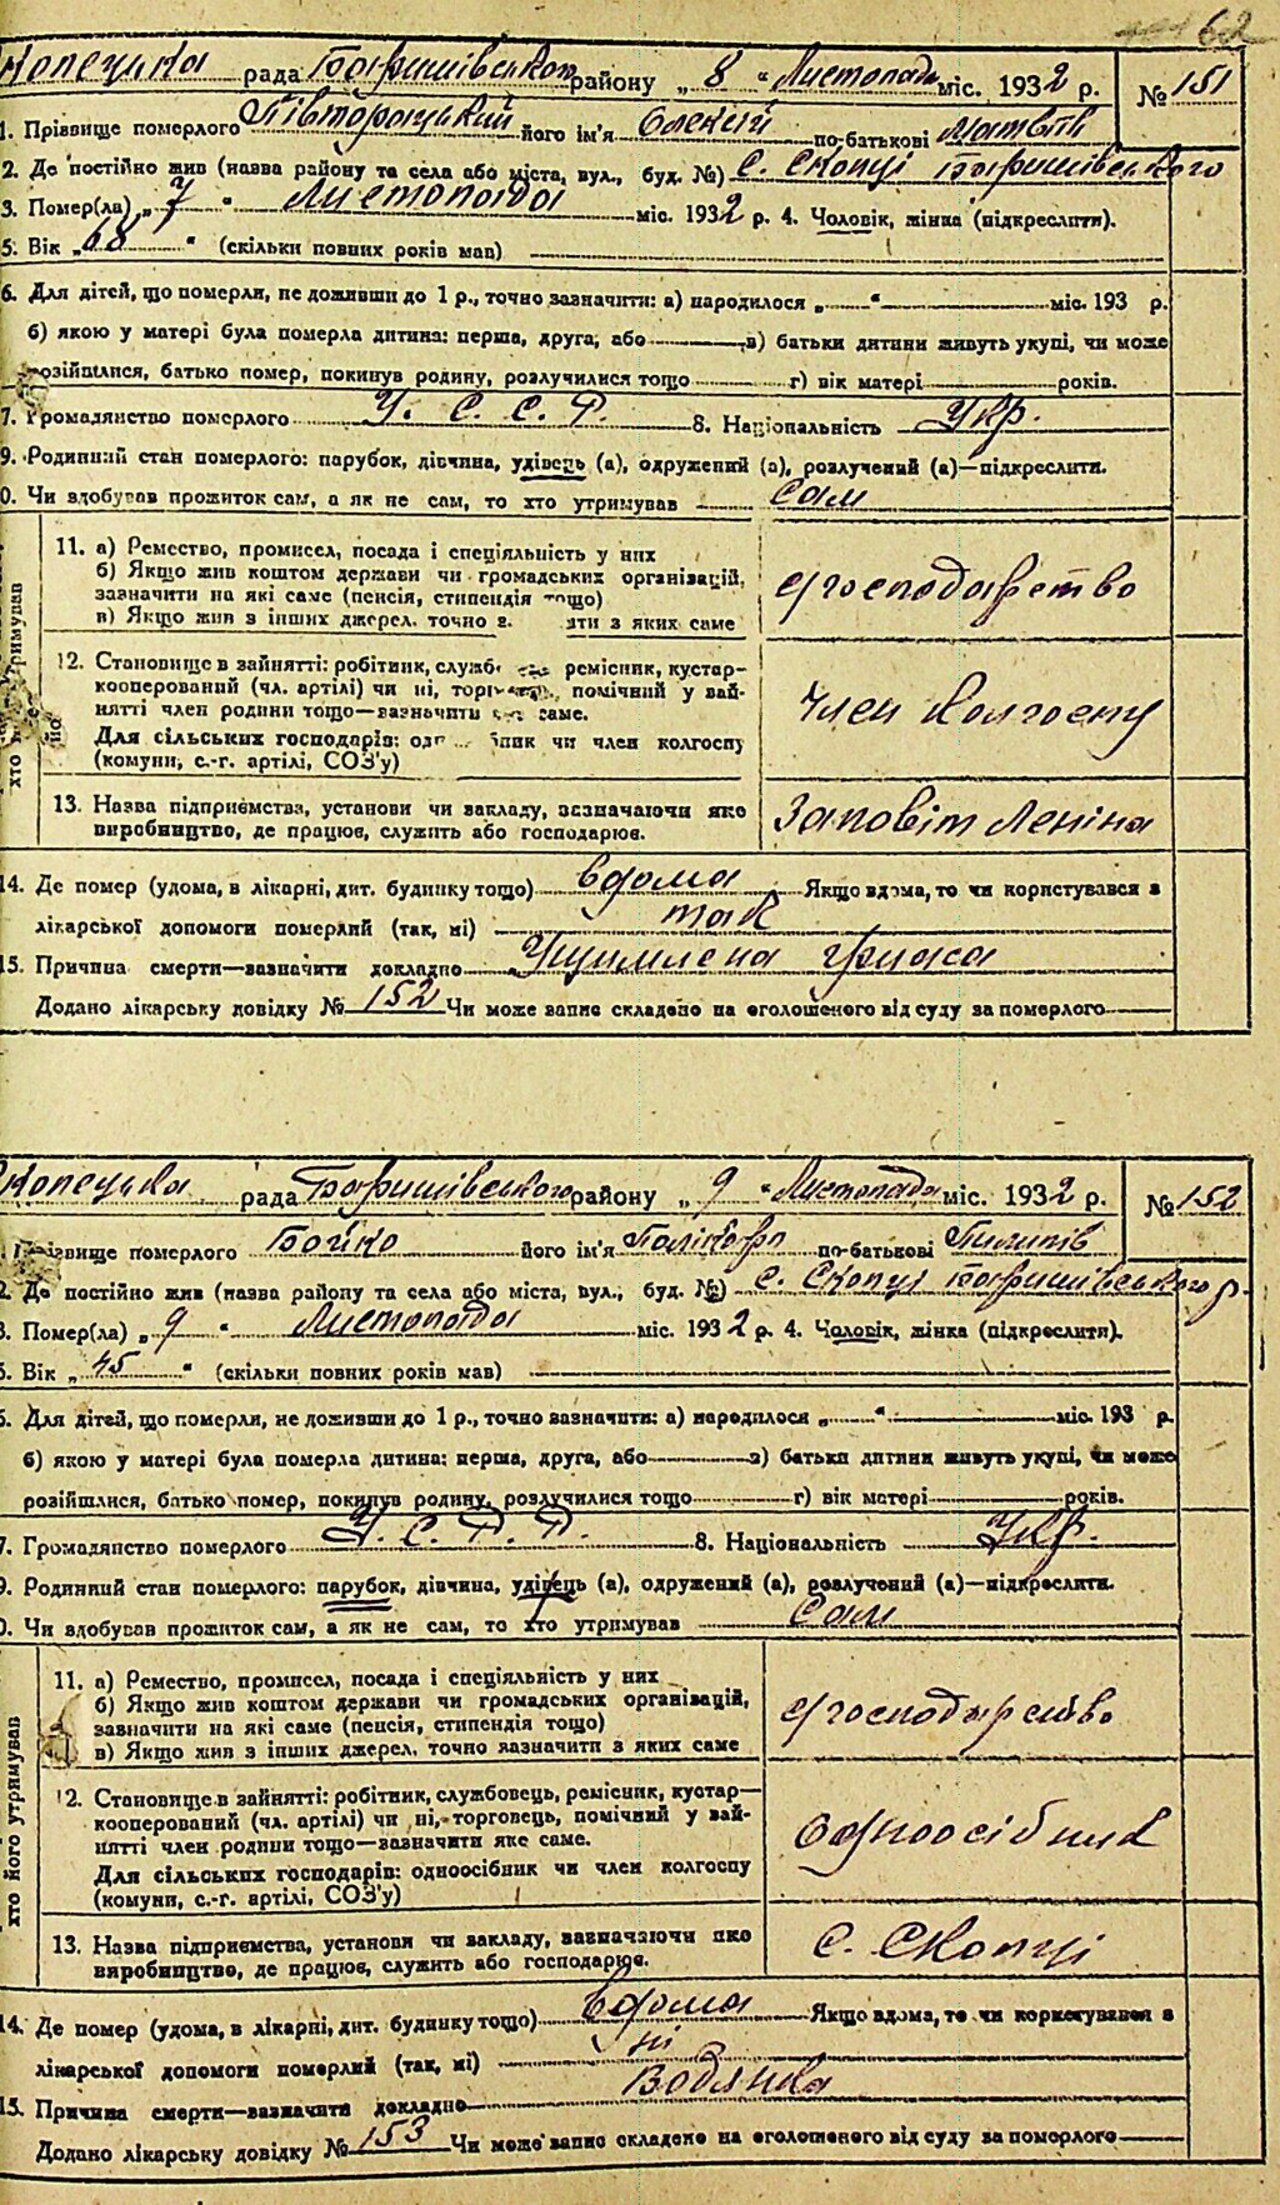 62
Копецька рада Баришівського району „ 8 " Листопада міс. 1932 р. № 151
1. Прізвище померлого Півторацький його ім'я Олексій по-батькові Матвіїв
2. Де постійно жив (назва району та села або міста, вул., буд. №) С. Скопці Баришівського
3. Помер(ла) „ 7 " Листопада міс. 1932 р. 4. Чоловік, жінка (підкреслити).
5. Вік „ 68 " (скільки повних років мав)
6. Для дітей, що померли, не доживши до 1 р., точно зазначити: а) народилося „ " міс. 193 р.
б) якою у матері була померла дитина: перша, друга, або в) батьки дитини живуть укупі, чи може
розійшлися, батько помер, покинув родину, розлучилися тощо г) вік матері років.
7. Громадянство померлого У. С. С. Р. 8. Національність Укр.
9. Родинний стан померлого: парубок, дівчина, удівець (а), одружений (а), розлучений (а)—підкреслити.
0. Чи здобував прожиток сам, а як не сам, то хто утримував сам
11. а) Ремество, промисел, посада і спеціяльність у них
б) Якщо жив коштом держави чи громадських організацій,
зазначити на які саме (пенсія, стипендія тощо)
в) Якщо жив з інших джерел, точно з ати з яких саме
с/господарство
12. Становище в зайнятті: робітник, служб ремісник, кустар-
кооперований (чл. артілі) чи ні, торг помічний у зай-
нятті член родини тощо—зазначити саме.
Для сільських господарів: од бник чи член колгоспу
(комуни, с.-г. артілі, СОЗ'у)
Член колгоспу
13. Назва підприємства, установи чи закладу, зазначаючи яке
виробництво, де працює, служить або господарює.
Заповіт Леніна
14. Де помер (удома, в лікарні, дит. будинку тощо) вдома Якщо вдома, то чи користувався з
лікарської допомоги померлий (так, ні) так
15. Причина смерти—зазначити докладно Ущимлена грижа
Додано лікарську довідку № 152 Чи може запис складено на оголошеного від суду за померлого
Копецька рада Баришівського району „ 9 " Листопада міс. 1932 р. № 152
Прізвище померлого Бойко його ім'я Полікарп по-батькові Пилипів
2. Де постійно жив (назва району та села або міста, вул., буд. №) С. Скопці Баришівського р.
3. Помер(ла) „ 9 " Листопада міс. 1932 р. 4. Чоловік, жінка (підкреслити).
5. Вік „ 45 " (скільки повних років мав)
6. Для дітей, що померли, не доживши до 1 р., точно зазначити: а) народилося „ " міс. 193 р.
б) якою у матері була померла дитина: перша, друга, або в) батьки дитини живуть укупі, чи може
розійшлися, батько помер, покинув родину, розлучилися тощо г) вік матері років.
7. Громадянство померлого У. С. Р. Р. 8. Національність Укр.
9. Родинний стан померлого: парубок, дівчина, удівець (а), одружений (а), розлучений (а)—підкреслити.
0. Чи здобував прожиток сам, а як не сам, то хто утримував Сам
хто його утримував
11. а) Ремество, промисел, посада і спеціяльність у них
б) Якщо жив коштом держави чи громадських організацій,
зазначити на які саме (пенсія, стипендія тощо)
в) Якщо жив з інших джерел, точно зазначити з яких саме
с/господарство
12. Становище в зайнятті: робітник, службовець, ремісник, кустар—
кооперований (чл. артілі) чи ні, торговець, помічний у зай-
нятті член родини тощо—зазначити яке саме.
Для сільських господарів: одноосібник чи член колгоспу
(комуни, с.-г. артілі, СОЗ'у)
Одноосібник
13. Назва підприємства, установи чи закладу, зазначаючи яке
виробництво, де працює, служить або господарює.
С. Скопці
14. Де помер (удома, в лікарні, дит. будинку тощо) вдома Якщо вдома, то чи користувався з
лікарської допомоги померлий (так, ні) ні
15. Причина смерти—зазначити докладно Водянка
Додано лікарську довідку № 153 Чи може запис складено на оголошеного від суду за померлого